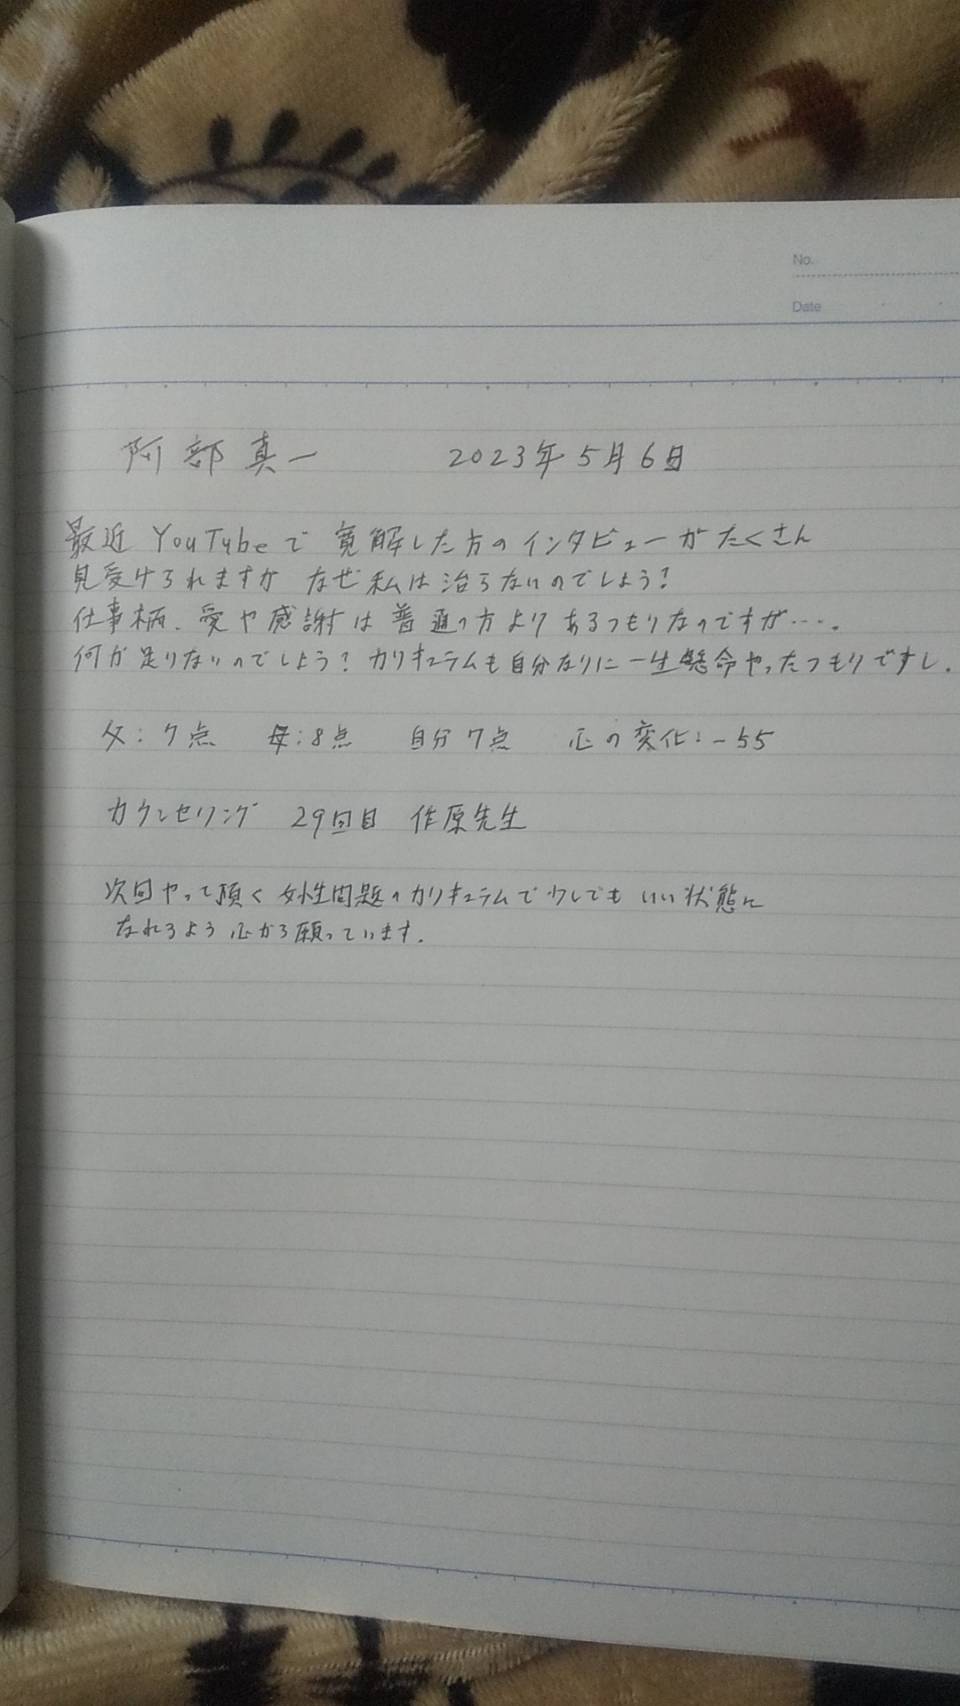 No.
Date
阿部真一 2023年5月6日
最近 YouTubeで 寛解した方のインタビューがたくさん
見受けられますが なぜ私は治らないのでしょう?
仕事柄、愛や感謝は普通の方よりあるつもりなのですが…。
何が足りないのでしょう?カリキュラムも自分なりに一生懸命やったつもりですし。
父:7点 母:8点 自分7点 心の変化:-55
カウンセリング 29回目 作原先生
次回やって頂く女性問題のカリキュラムで少しでもいい状態に
なれるよう心から願っています。